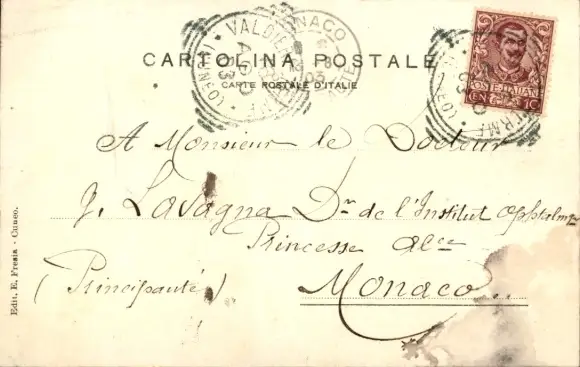 CARTOLINA POSTALE
CARTE POSTALE D'ITALIE
VALDIERI
(CUNEO)
MONACO
03
POSTE ITALIANE
CENT 10
A Monsieur le Docteur
J. Lavagna Dr de l'Institut Ophtalmique
Princesse Alice
(Principauté) Monaco
Edit. E. Fresia - Cuneo.